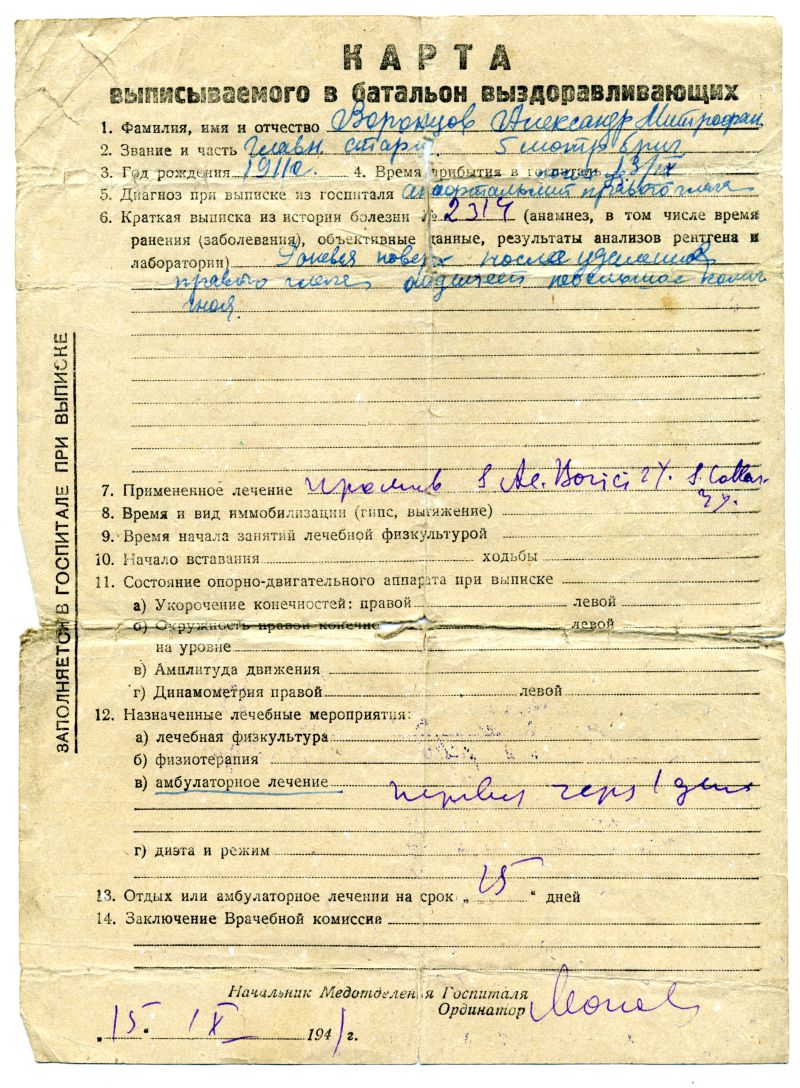 КАРТА
выписываемого в батальон выздоравливающих
1. Фамилия, имя и отчество Воронцов Александр Митрофан.
2. Звание и часть Главн. старш. 5 мотр бриг
3. Год рождения 1911г. 4. Время прибытия в госпиталь 13/IX
5. Диагноз при выписке из госпиталя правого глаза
6. Краткая выписка из истории болезни № 2314 (анамнез, в том числе время
ранения (заболевания), объективные данные, результаты анализов рентгена и
лаборатории) поверх после удаления
правого глаза отделяет небольшое колич
гноя.
ЗАПОЛНЯЕТСЯ В ГОСПИТАЛЕ ПРИ ВЫПИСКЕ
7. Примененное лечение промыв S Ac. Borici 2%. S. Collar.
3%.
8. Время и вид иммобилизации (гипс, вытяжение)
9. Время начала занятий лечебной физкультурой
10. Начало вставания ходьбы
11. Состояние опорно-двигательного аппарата при выписке
а) Укорочение конечностей: правой левой
б) Окружность правой конечно левой
на уровне
в) Амплитуда движения
г) Динамометрия правой левой
12. Назначенные лечебные мероприятия:
а) лечебная физкультура
б) физиотерапия
в) амбулаторное лечение
перевяз через 1 день
г) диэта и режим
13. Отдых или амбулаторное лечении на срок „15“ дней
14. Заключение Врачебной комиссии
Начальник Медотделения Госпиталя
Ординатор
„15“ IX 1941 г.